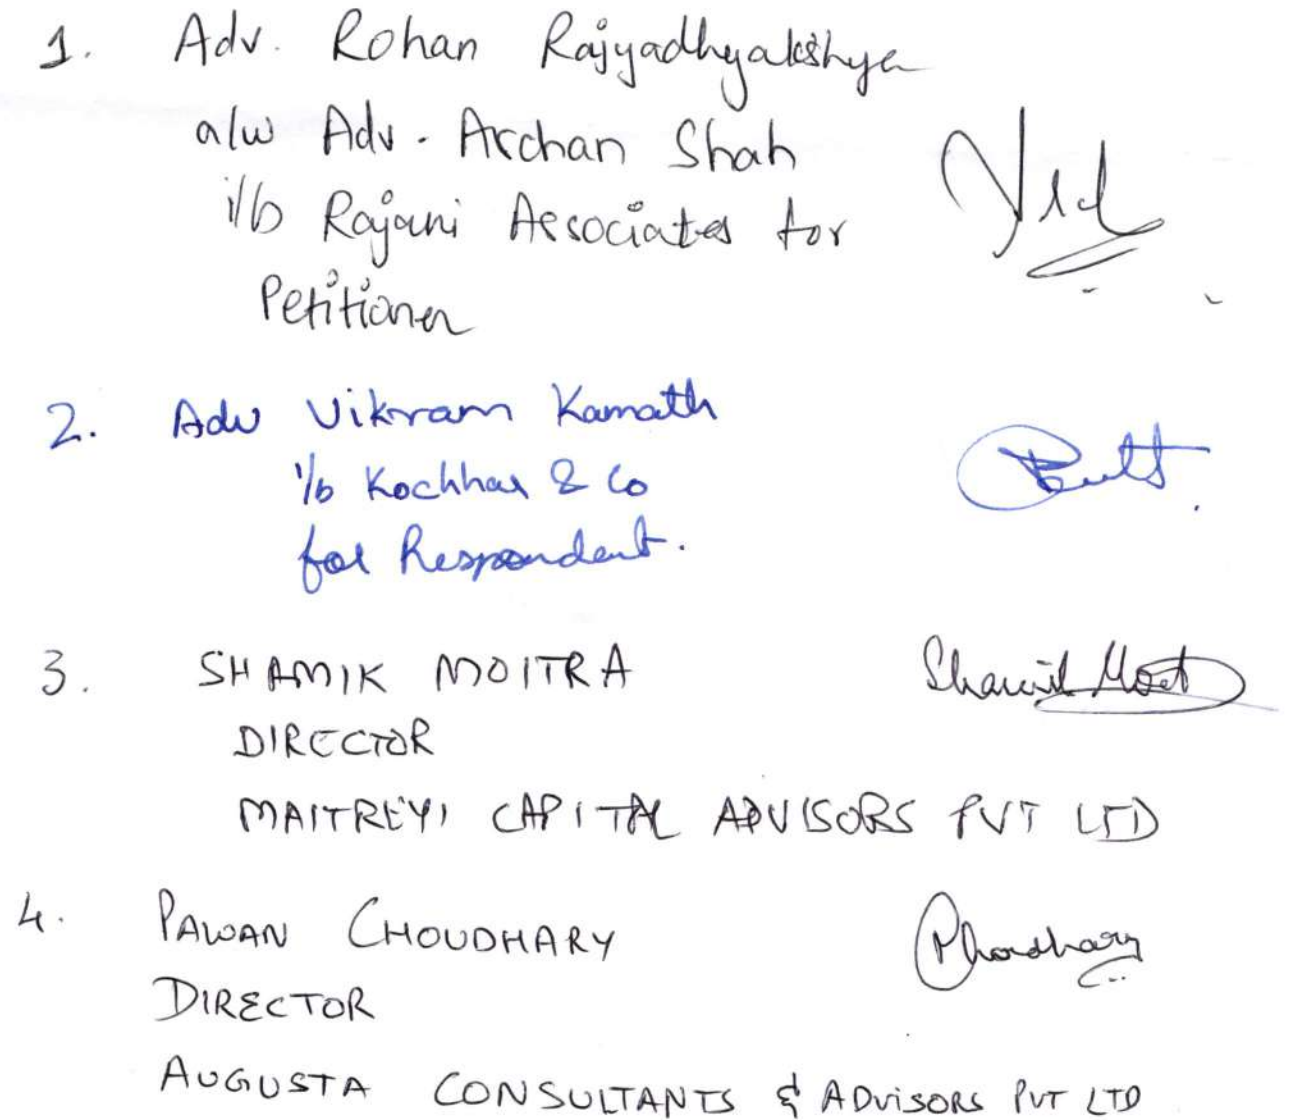 1. Adv. Rohan Rajyadhyakshya
a/w Adv. Archan Shah
i/b Rajani Associates for
Petitioner
2. Adv Vikram Kamath
i/b Kochhar & Co
for Respondent.
3. SHAMIK MOITRA Shamik Moit
DIRECTOR
MAITREYI CAPITAL ADVISORS PVT LTD
4. PAWAN CHOUDHARY PChoudhary
DIRECTOR
AUGUSTA CONSULTANTS & ADVISORS PVT LTD